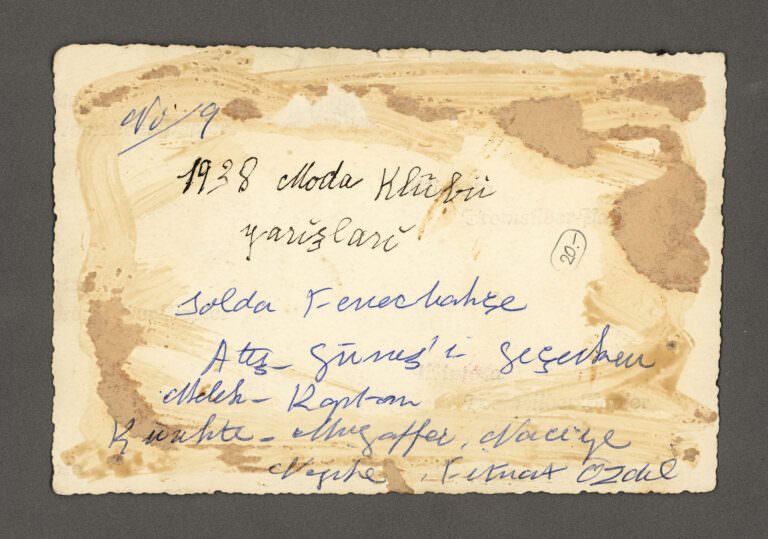 No. 9
1938 Moda Klübü
yarışları
20.-
Solda Fenerbahçe
Ateş - Güneş'i geçerken
Melek - Kaptan
Kürekte - Muzaffer, Naciye
Nezihe, Fitnat Özdil